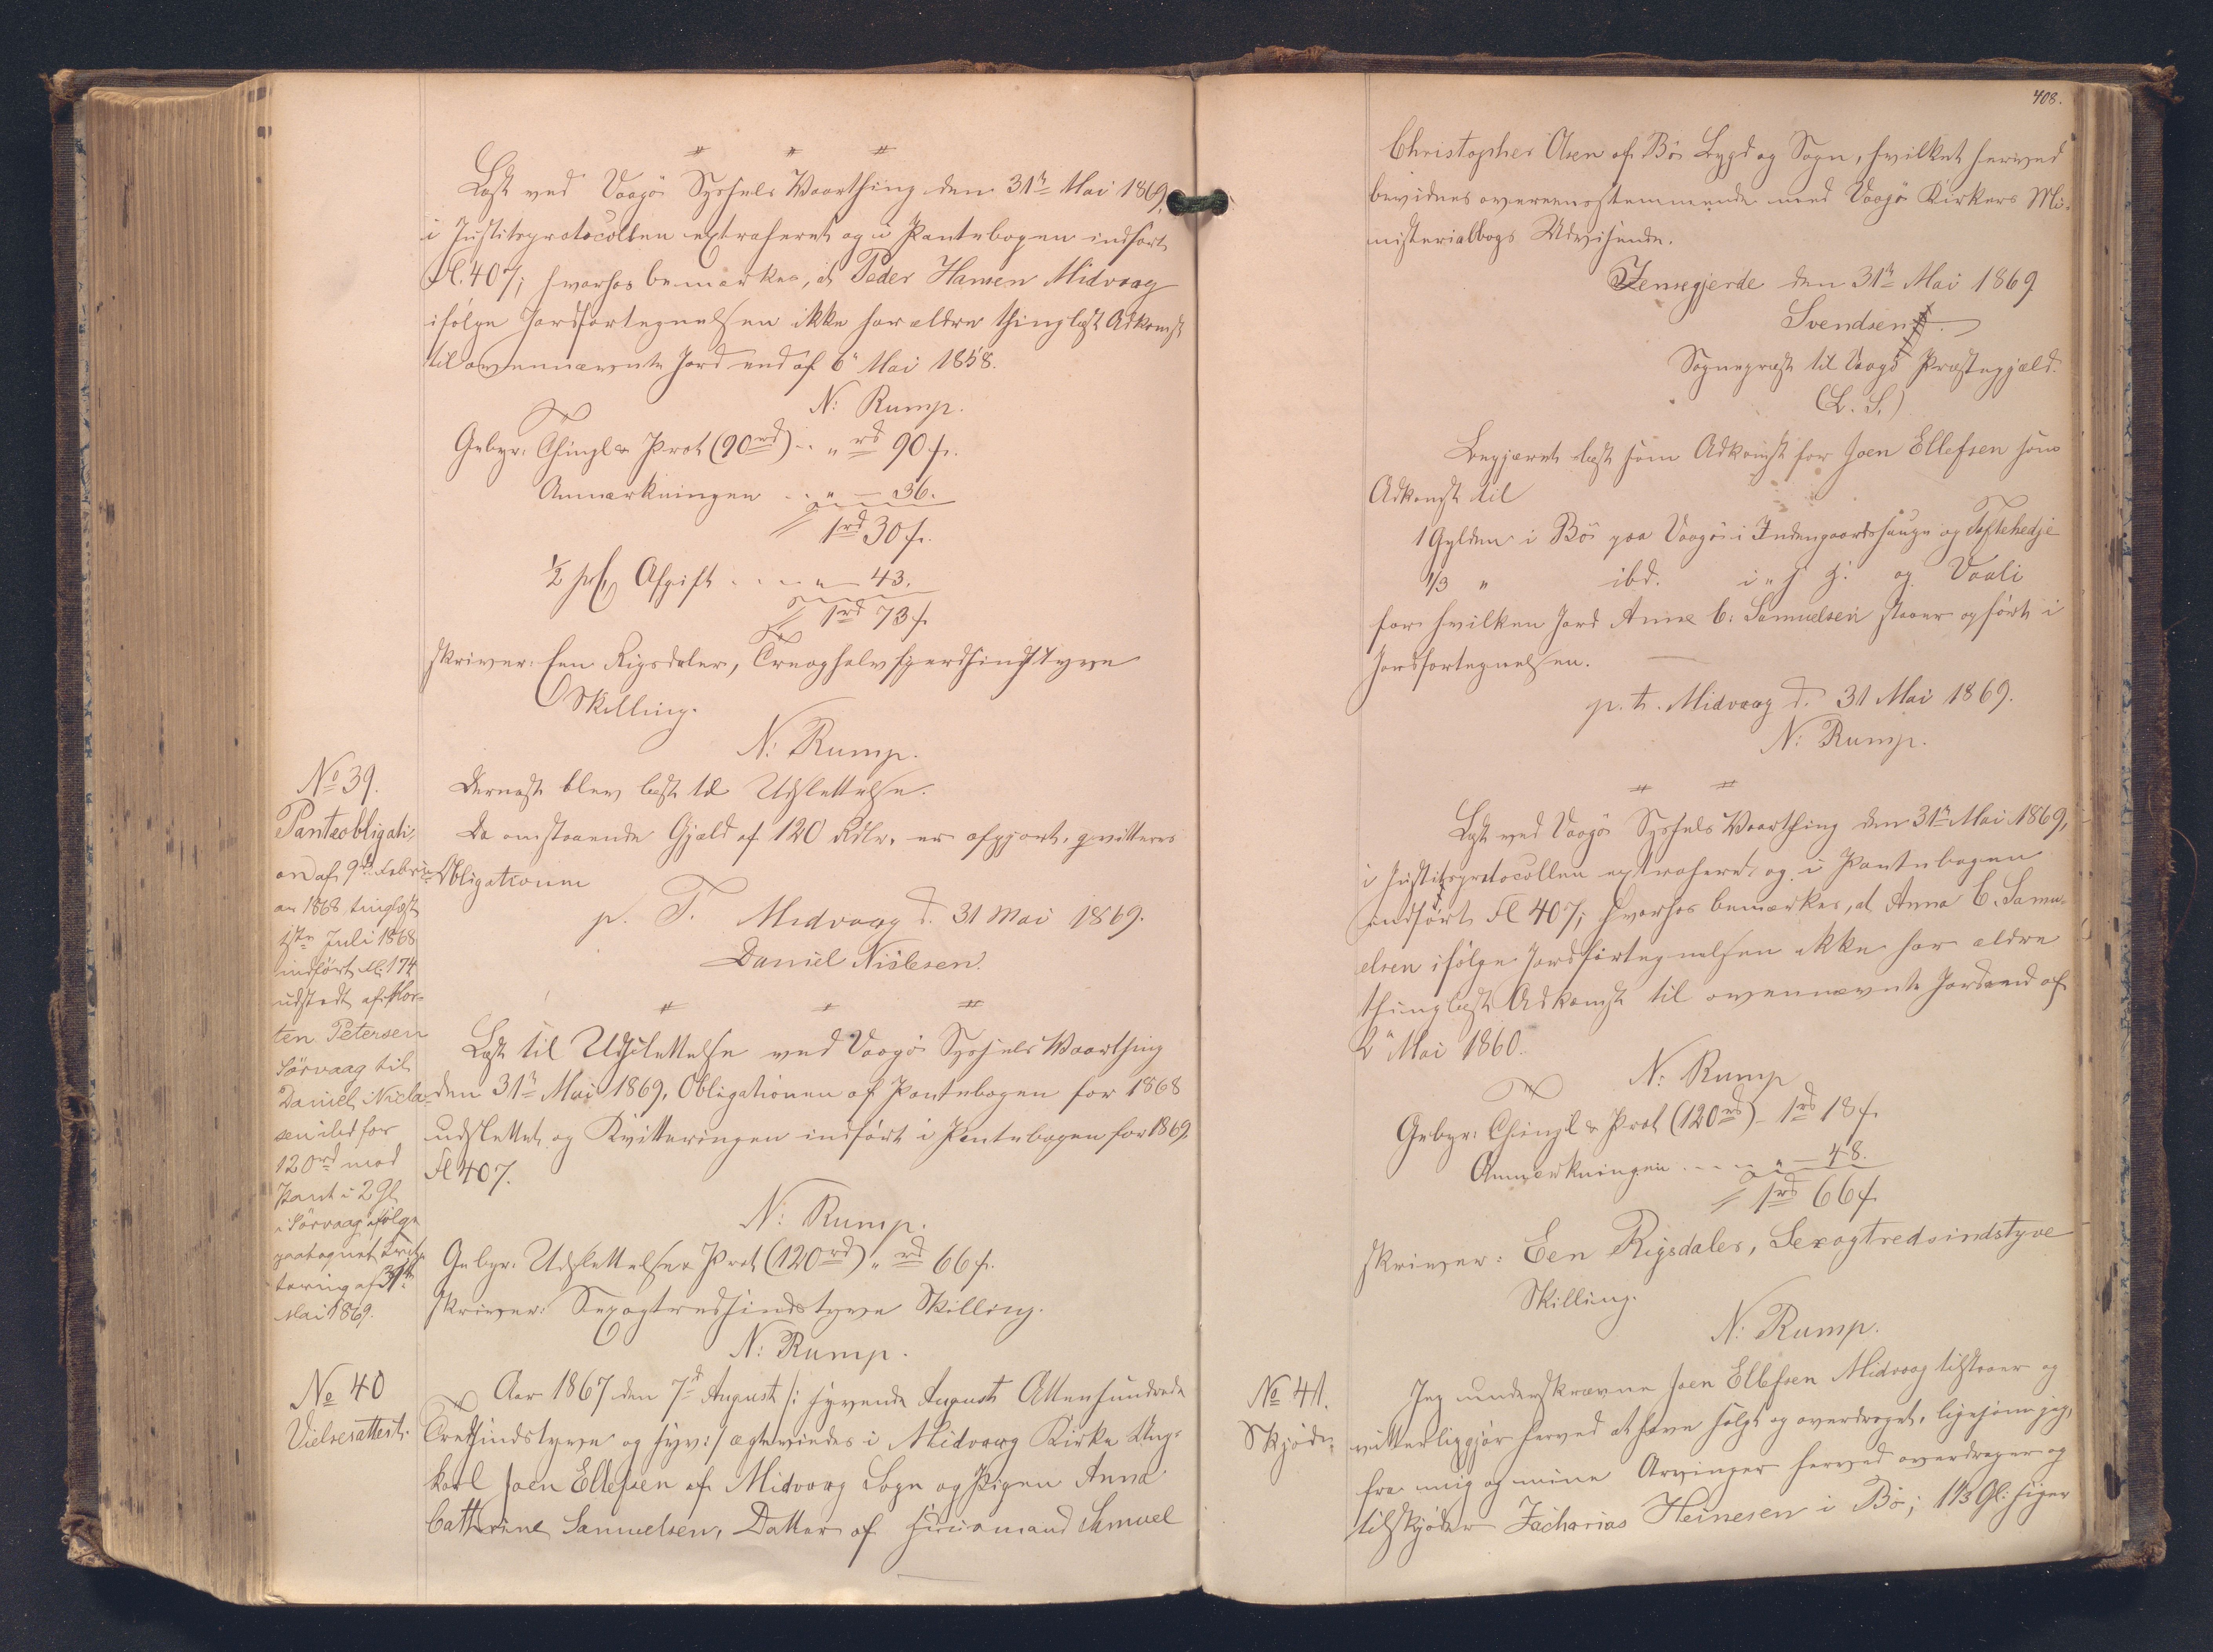 Læst ved Vaagø Syssels Vaarthing den 31te Mai 1869,
i Justitsprotocollen extraheret og i Pantebogen indført
Fl. 407; hvorhos bemærkes, at Peder Hansen Midvaag
ifølge Jordfortegnelsen ikke har ældre thinglæst Adkomst
til ovennævnte Jord end af 6te Mai 1858.
N: Rump.
Gebyr: Thingl & Prot (90rd) .. " rd 90 s.
Anmærkningen . . " — 36.
1rd 30 s.
½ pCt Afgift . . . . " — 43.
1rd 73 s.
skriver: Een Rigsdaler, Treoghalvfjerdsindstyve
Skilling.
N: Rump.
No 39.
Panteobligati-
on af 9de Febru-
ar 1868, tinglæst
1ste Juli 1868
indført Fl. 174
udstedt af Mor-
ten Petersen
Sörvaag til
Daniel Nicla-
sen ibd for
120rd mod
Pant i 2 Gl
i Sörvaag ifølge
paategnet Kvit-
tering af 31te
Mai 1869.
Dernæst blev læst til Udslettelse.
Da omstaaende Gjæld af 120 Rdlr. er afgjort, qvitteres
Obligationen
p. T. Midvaag d. 31 Mai 1869.
Daniel Niclesen.
Læst til Udslettelse ved Vaagø Syssels Vaarthing
den 31te Mai 1869, Obligationen af Pantebogen for 1868
udslettet og Kvitteringen indført i Pantebogen for 1869,
Fl 407.
N: Rump.
Gebyr: Udslettelse & Prot (120rd) " rd 66 s.
skriver: Sexogtredsindstyve Skilling.
N: Rump.
No 40
Vielsesattest.
Aar 1867 den 7de August /: syvende August Attenhundrede
Tredsindstyve og syv :/ ægteviedes i Midvaag Kirke Ung-
karl Joen Ellefsen af Midvaag Sogn og Pigen Anna
Cathrine Samuelsen, Datter af Huusmand Samuel
408.
Christopher Olsen af Bö Bygd og Sogn, hvilket herved
bevidnes overeensstemmende med Vaagø Kirkers Mi-
nisterialbogs Udvisende.
Jensegjerde den 31te Mai 1869
Svendsen
Sognepræst til Vaagø Præstegjæld.
(L. S.)
Begjæret læst som Adkomst for Joen Ellefsen som
Adkomst til
1 Gylden i Bö paa Vaagö i Indengaardshauge og Toftehedje
1/3 " ibd. i " H. G. og Vaali
for hvilken Jord Anne C: Samuelsen staaer opført i
Jordfortegnelsen.
p. t. Midvaag d. 31 Mai 1869.
N: Rump.
Læst ved Vaagø Syssels Vaarthing den 31te Mai 1869,
i Justitsprotocollen extraheret og i Pantebogen
indført Fl 407; hvorhos bemærkes, at Anna C. Samu-
elsen ifølge Jordfortegnelsen ikke har ældre
thinglæst Adkomst til ovennævnte Jord end af
2den Mai 1860.
N: Rump
Gebyr: Thingl & Prot (120rd) - 1rd 18 s.
Anmærkningen . . . . " — 48.
1rd 66 s.
skriver: Een Rigsdaler, Sexogtredsindstyve
Skilling.
N: Rump.
No 41.
Skjøde.
Jeg underskrevne Joen Ellefsen Midvaag tilstaaer og
vitterliggjør herved at have solgt og overdraget, ligesom jeg,
fra mig og mine Arvinger herved overdrager og
tilskjøder Zacharias Heinesen i Bö; 1 1/3 Gl: siger